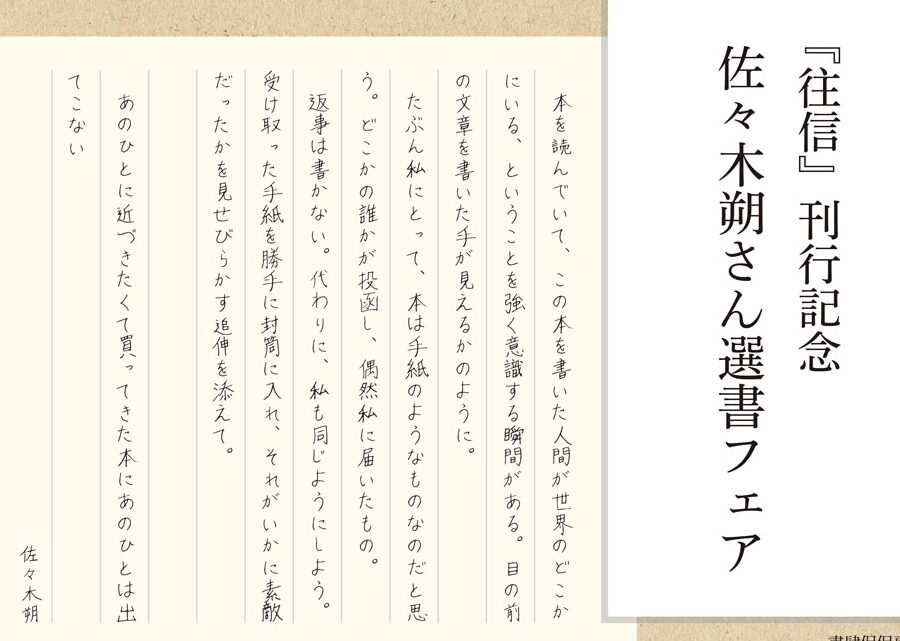 『往信』刊行記念
佐々木朔さん選書フェア
本を読んでいて、この本を書いた人間が世界のどこか
にいる、ということを強く意識する瞬間がある。目の前
の文章を書いた手が見えるかのように。
たぶん私にとって、本は手紙のようなものなのだと思
う。どこかの誰かが投函し、偶然私に届いたもの。
返事は書かない。代わりに、私も同じようにしよう。
受け取った手紙を勝手に封筒に入れ、それがいかに素敵
だったかを見せびらかす追伸を添えて。
あのひとに近づきたくて買ってきた本にあのひとは出
てこない
佐々木朔